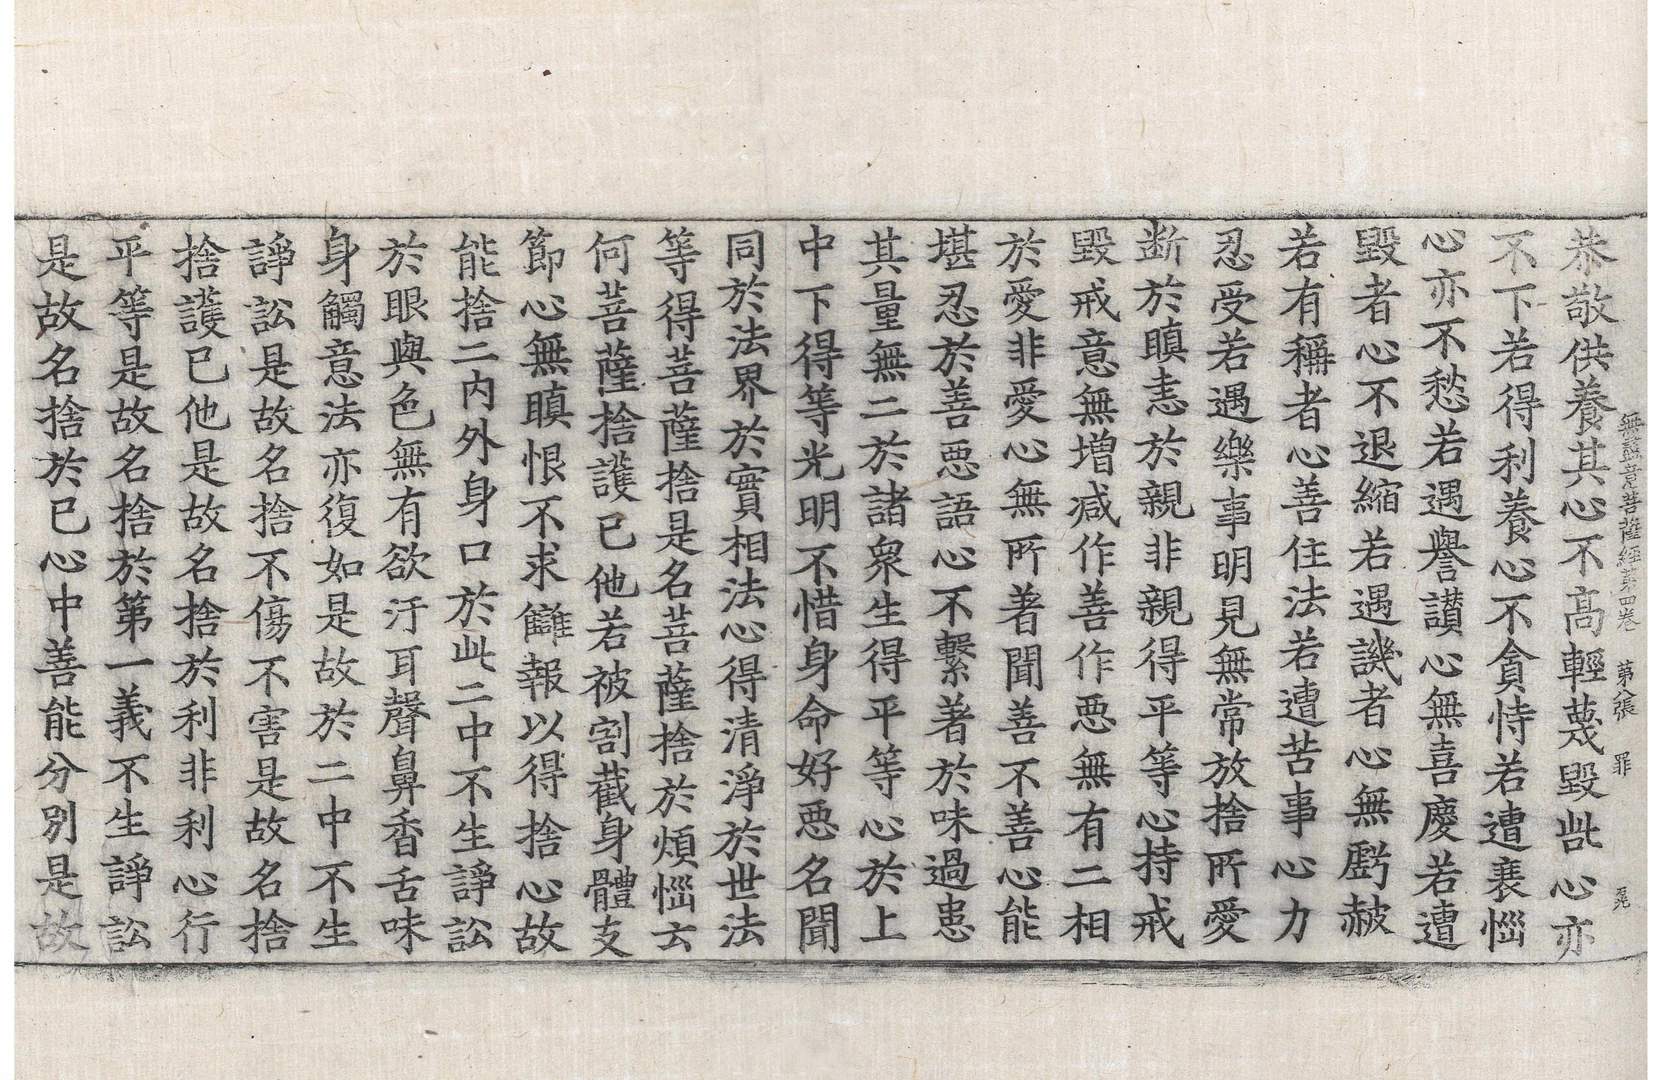 無盡意菩薩經第四卷 第八張 罪
恭敬供養其心不高輕蔑毀呰心亦
不下若得利養心不貪恃若遭衰惱
心亦不愁若遇譽讃心無喜慶若遭
毀者心不退縮若遇譏者心無虧赧
若有稱者心善住法若遭苦事心力
忍受若遇樂事明見無常放捨所愛
断於瞋恚於親非親得平等心持戒
毀戒意無増減作善作惡無有二相
於愛非愛心無所著聞善不善心能
堪忍於善惡語心不繫著於味過患
其量無二於諸衆生得平等心於上
中下得等光明不惜身命好惡名聞
同於法界於實相法心得清淨於世法
等得菩薩捨是名菩薩捨於煩惱云
何菩薩捨護已他若被割截身體支
節心無瞋恨不求讎報以得捨心故
能捨二內外身口於此二中不生諍訟
於眼與色無有欲汙耳聲鼻香舌味
身觸意法亦復如是故於二中不生
諍訟是故名捨不傷不害是故名捨
捨護已他是故名捨於利非利心行
平等是故名捨於第一義不生諍訟
是故名捨於已心中善能分別是故